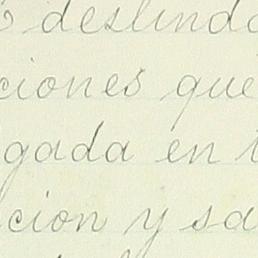 deslind
ciones que
gada en
cion y sa